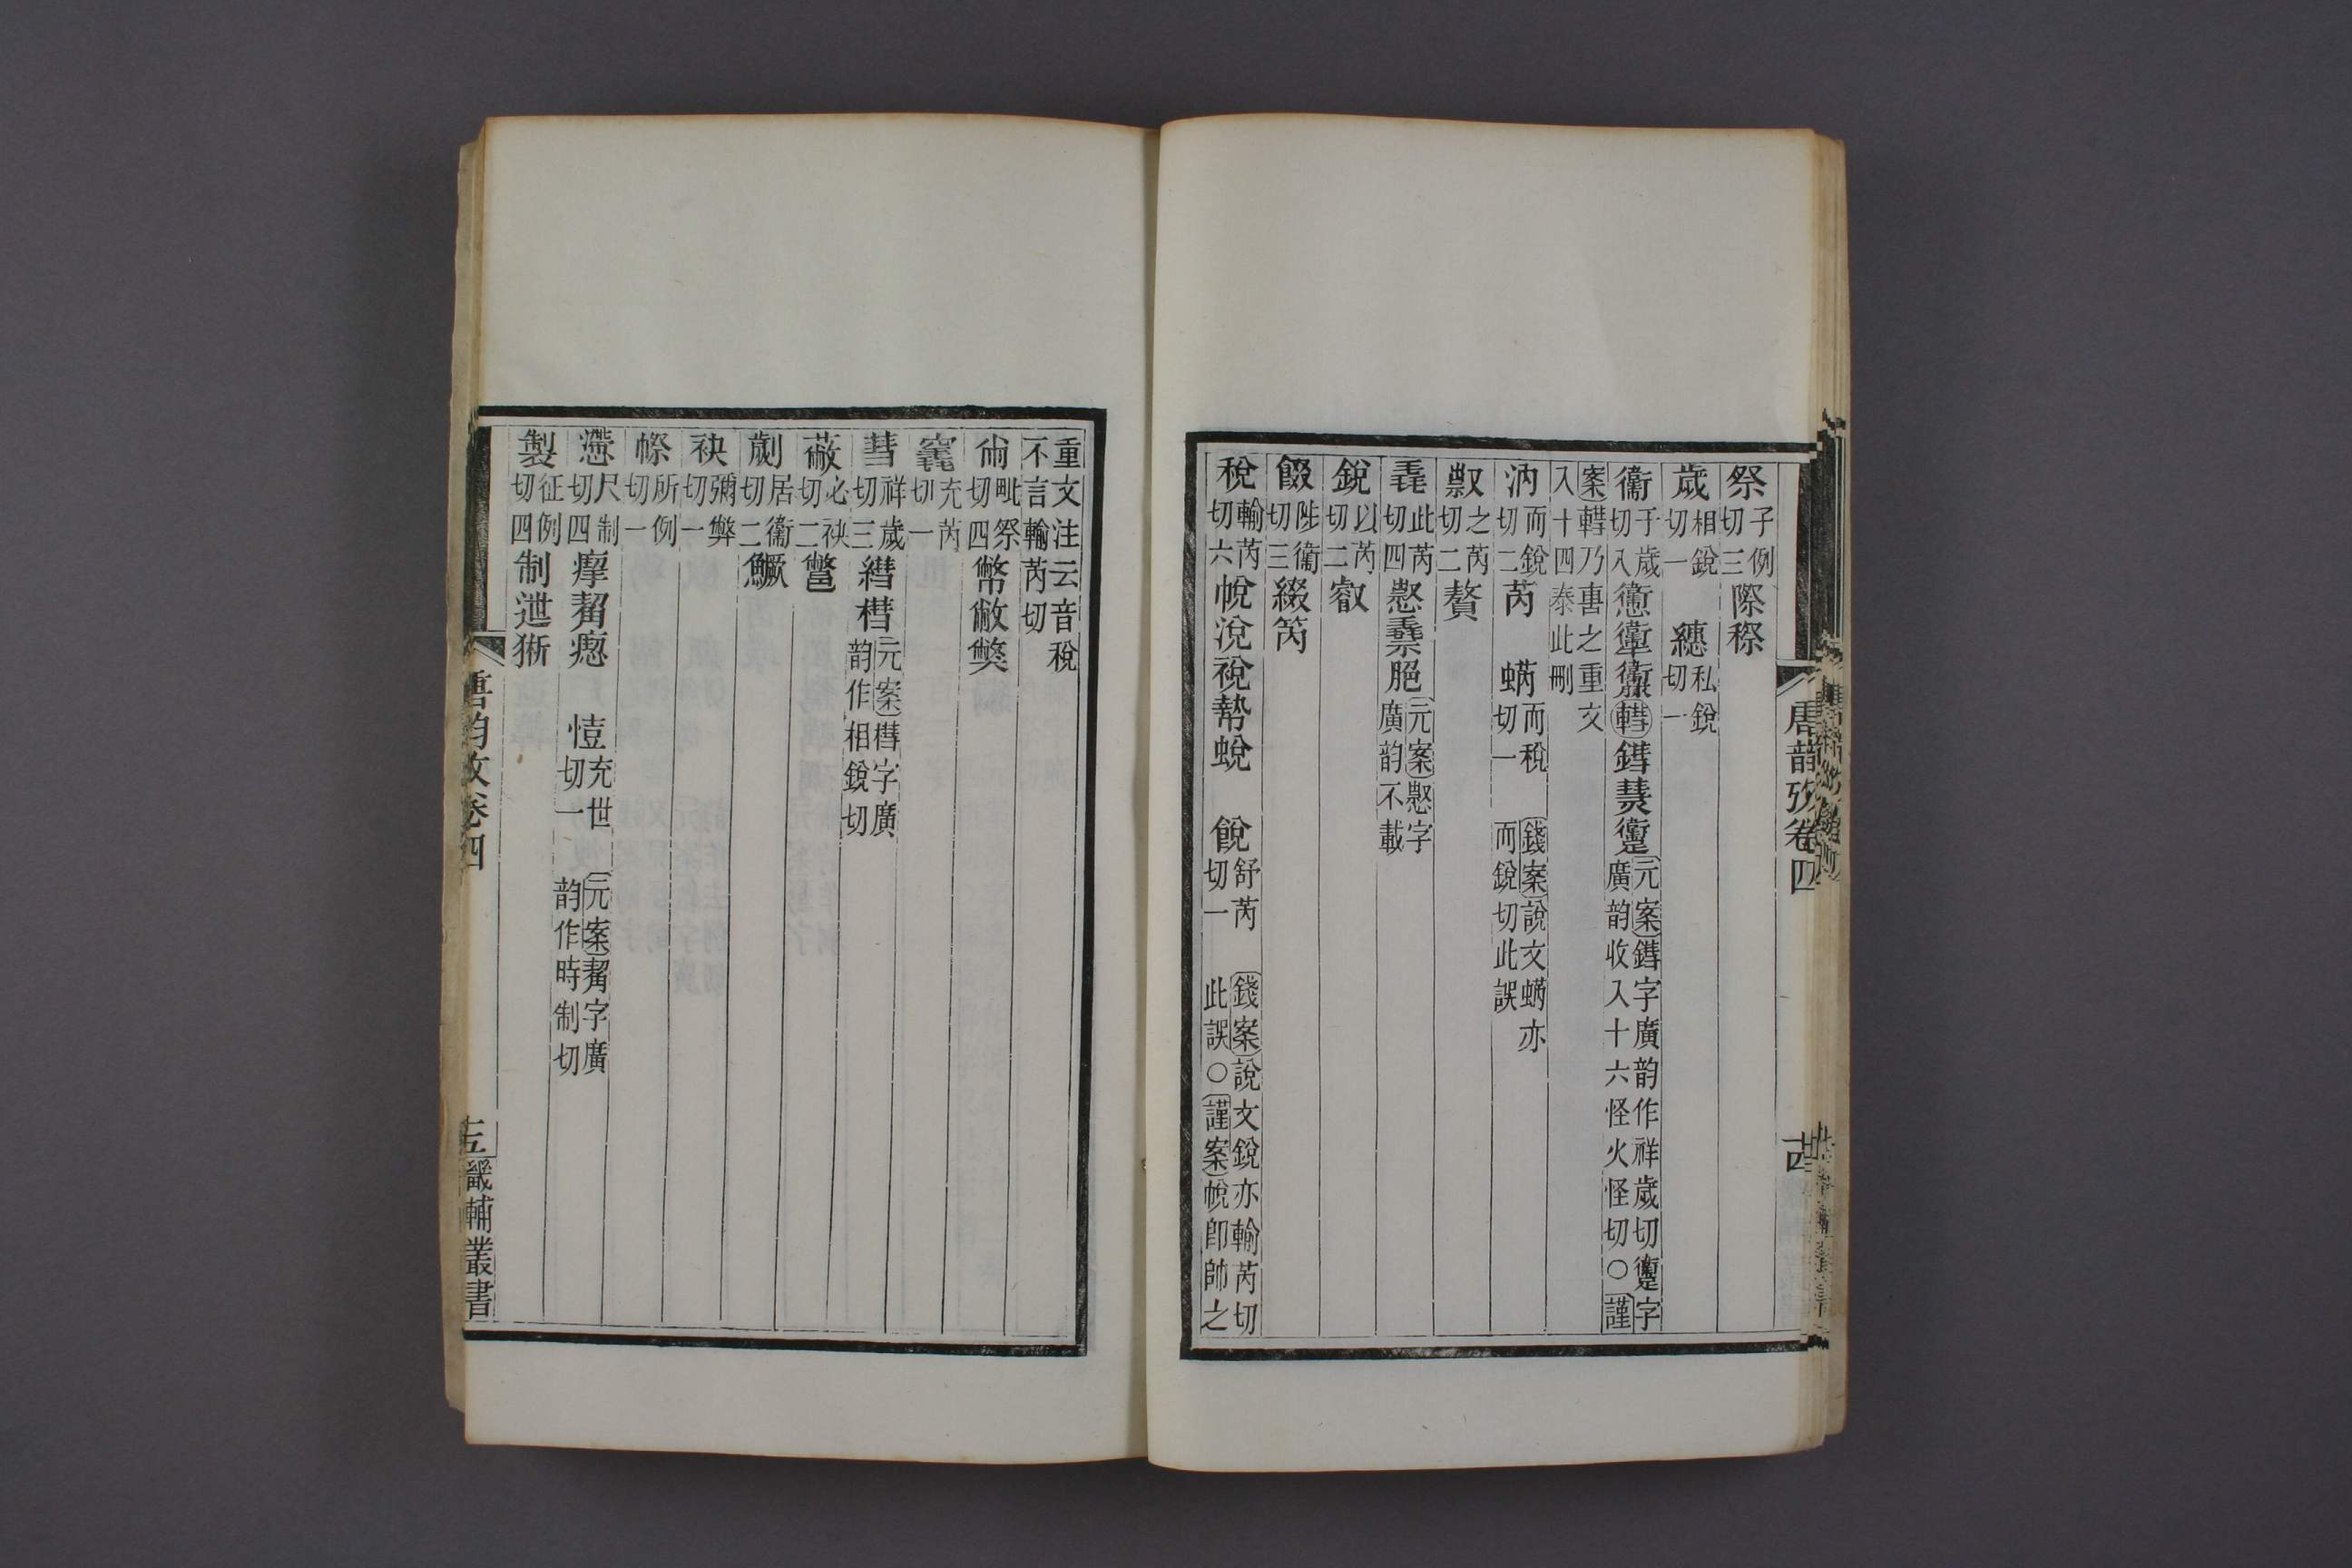 祭子例切三際穄
歲相銳切一 繐私銳切一
衞于歲切八𢣧𤜂𧗸轊鏏熭躗元案鏏字廣韵作祥歲切躗字廣韵收入十六怪火怪切○謹
案轊乃軎之重文入十四泰此刪
汭而銳切二芮 蜹而稅切一 錢案說文蜹亦而銳切此誤
𣀔之芮切二贅
毳此芮切四𢡆膬脃元案𢡆字廣韵不載
銳以芮切二叡
餟陟衞切三綴笍
稅輸芮切六帨涗祱䓵蛻 餽舒芮切一 錢案說文銳亦輸芮切此誤○謹案帨卽帥之
唐韵攷卷四
十四
重文注云音稅不言輸芮切
㡀毗祭切四幣敝獘
竁充芮切一
彗祥歲切三䌌槥元案槥字廣韵作相銳切
蔽必袂切二鷩
劌居衞切二鱖
袂彌弊切一
㡜所例切一
懘尺制切四瘛觢瘛 㥣充世切一 元案觢字廣韵作時制切
製征例切四制迣狾
唐韵攷卷四
十五
畿輔叢書